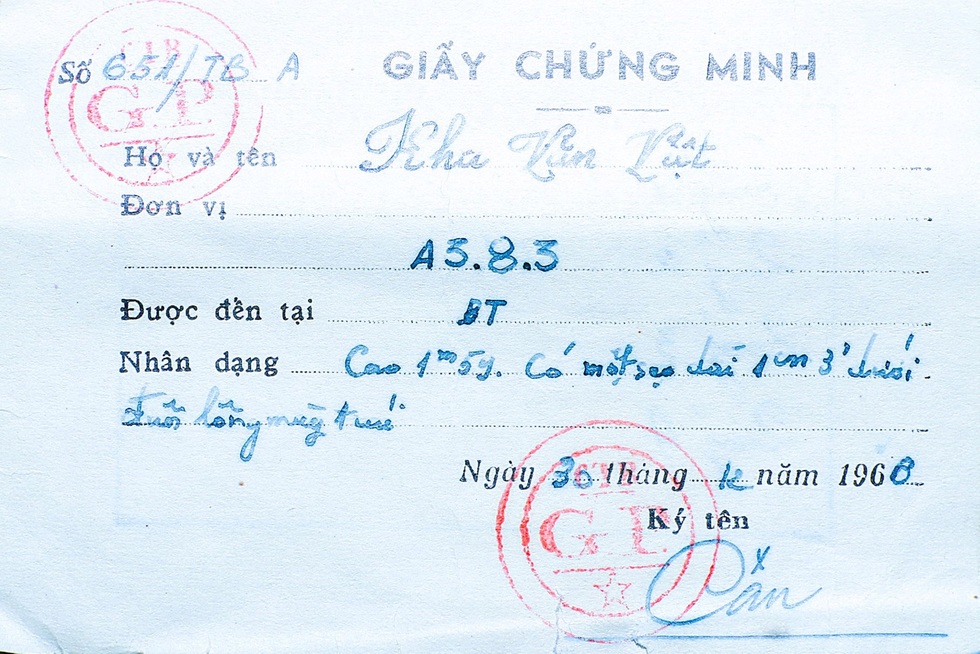 Số 651/TB A
GIẤY CHỨNG MINH
CTB
G.P.
Họ và tên Kha Văn Vật
Đơn vị
A5.8.3
Được đến tại BT
Nhân dạng Cao 1m59. Có một sẹo dài 1cm3 dưới
đuôi lông mày
Ngày 30 tháng 12 năm 1968
Ký tên
CTB
G.P.